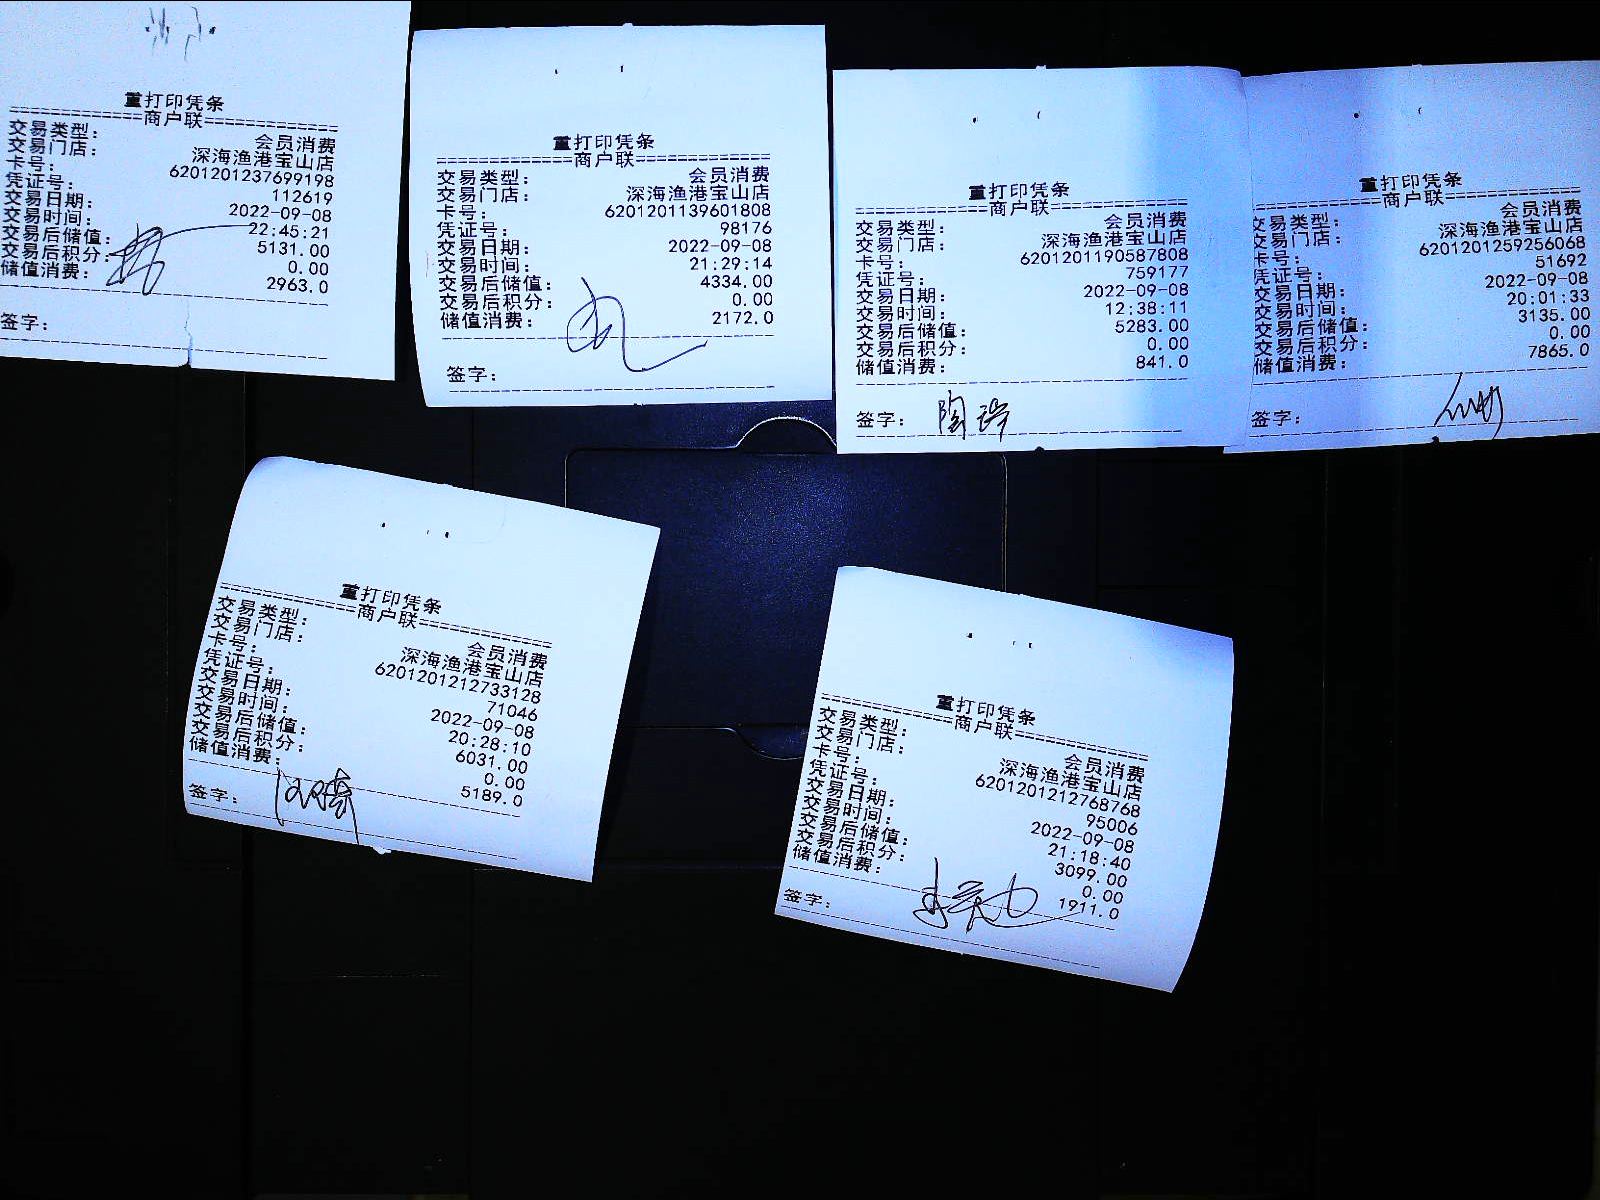 重打印凭条
============商户联============
交易类型: 会员消费
交易门店: 深海渔港宝山店
卡号: 6201201237699198
凭证号: 112619
交易日期: 2022-09-08
交易时间: 22:45:21
交易后储值: 5131.00
交易后积分: 0.00
储值消费: 2963.0
签字:
重打印凭条
============商户联============
交易类型: 会员消费
交易门店: 深海渔港宝山店
卡号: 6201201139601808
凭证号: 98176
交易日期: 2022-09-08
交易时间: 21:29:14
交易后储值: 4334.00
交易后积分: 0.00
储值消费: 2172.0
签字:
重打印凭条
============商户联============
交易类型: 会员消费
交易门店: 深海渔港宝山店
卡号: 6201201190587808
凭证号: 759177
交易日期: 2022-09-08
交易时间: 12:38:11
交易后储值: 5283.00
交易后积分: 0.00
储值消费: 841.0
签字:
重打印凭条
============商户联============
交易类型: 会员消费
交易门店: 深海渔港宝山店
卡号: 6201201259256068
凭证号: 51692
交易日期: 2022-09-08
交易时间: 20:01:33
交易后储值: 3135.00
交易后积分: 0.00
储值消费: 7865.0
签字:
重打印凭条
============商户联============
交易类型: 会员消费
交易门店: 深海渔港宝山店
卡号: 6201201212733128
凭证号: 71046
交易日期: 2022-09-08
交易时间: 20:28:10
交易后储值: 6031.00
交易后积分: 0.00
储值消费: 5189.0
签字:
重打印凭条
============商户联============
交易类型: 会员消费
交易门店: 深海渔港宝山店
卡号: 6201201212768768
凭证号: 95006
交易日期: 2022-09-08
交易时间: 21:18:40
交易后储值: 3099.00
交易后积分: 0.00
储值消费: 1911.0
签字: